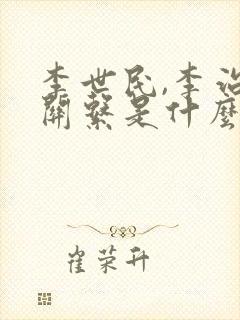 李世民,李治
關繫是什麼
崔荣升